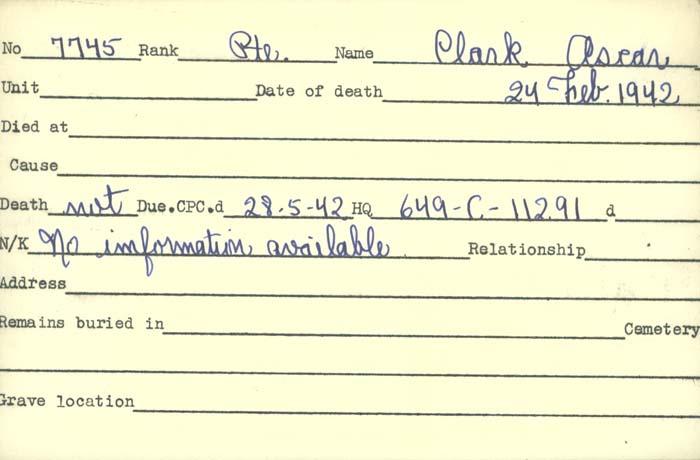 No 7745 Rank Pte. Name Clark Oscar
Unit Date of death 24 Feb. 1942
Died at
Cause
Death not Due.CPC.d 28-5-42 HQ 649-C-11291 d
N/K No information available Relationship
Address
Remains buried in Cemetery
Grave location